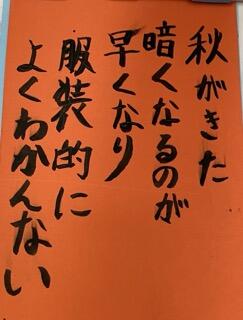 秋がきた
暗くなるのが
早くなり
服装的に
よくわかんない